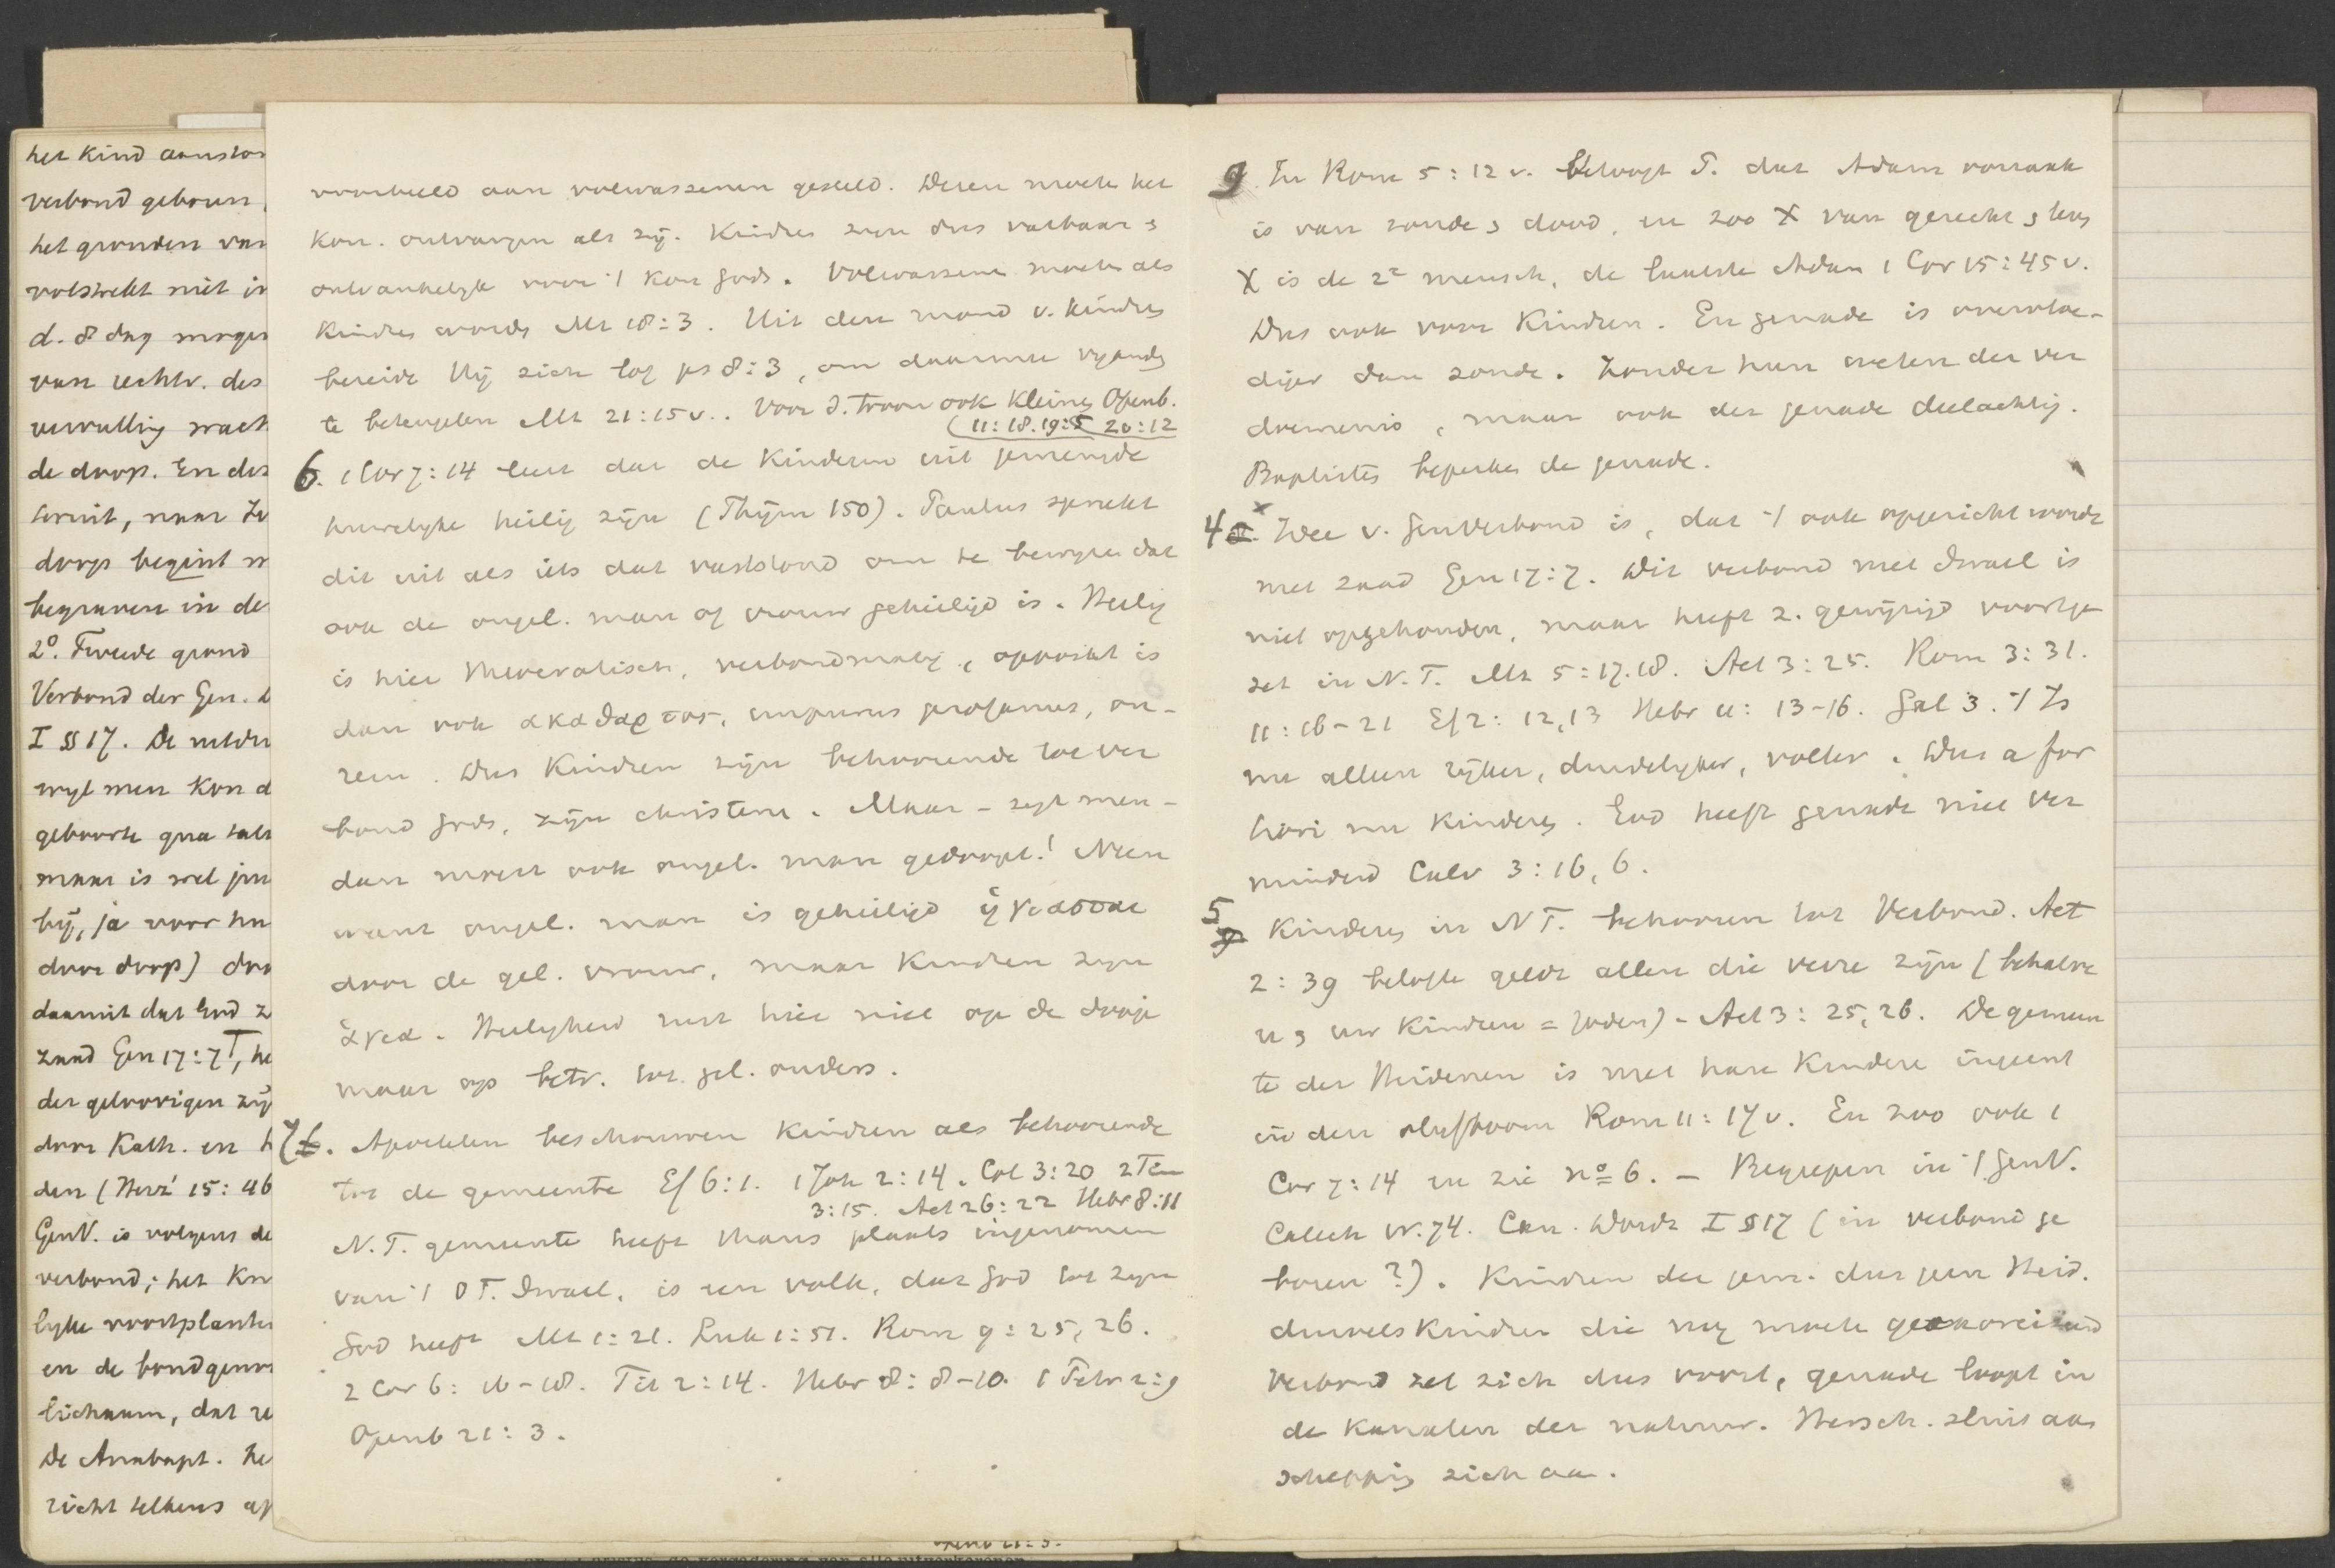 het kind aanst
verbond geboren
het gronden van
volstrekt niet in
d. 8 dag mogen
van rechtv. des
vervulling wach
de doop. En des
doop begint
begraven in de
2°. Tweede grond
Verbond der Gen.
I § 17. De
wyl men kon d
geboorte qua
maar is wel
by, ja voor hu
door doop)
daarmit dat God z
zaad Gen 17:7, he
der geloovigen zij
door Kath. en h
den (Herv 15:46
GenV. is volgens de
verbond; het
lyke voortplanti
en de bondgeno
lichaam, dat
De Anabapt. he
richt telkens op
voorbeeld aan volwassenen gesteld. Dezen moeten het
Kon. ontvangen als zij. Kindren zyn dus vatbaar &
ontvankelyk voor 't Kon Gods. Volwassenen moeten als
Kindren worden Mt 18:3. Uit den mond v. kindren
bereidt Hij zich lof ps 8:3, om daarmee vyanden
te beteugelen Mt 21:15v.. Voor d. troon ook kleinen Openb.
(11:18. 19:5 20:12
6. 1 Cor 7:14 leert dat de Kinderen uit gemengde
huwelyke heilig zijn (Thijm 150). Paulus spreekt
dit uit als iets dat vaststond om te bewyzen dat
ook de ongel. man of vrouw geheiligd is. Heilig
is hier theocratisch, verbondmatig, opposiet is
dan ook ακαθαρτος, impurus profanus, on-
rein. Dus Kindren zijn behoorende tot ver
bond Gods, zijn christenen. Maar - zegt men -
dan moest ook ongel. man gedoopt! Neen
want ongel. man is geheiligd ἡγιασται
door de gel. vrouw, maar Kindren zyn
ἁγια. Heiligheid rust hier niet op de doop
maar op betr. tot gel. ouders.
7 6. Apostelen beschouwen Kindren als behoorende
tot de gemeente Ef 6:1. 1 Joh 2:14. Col 3:20 2 Tim
3:15. Act 26:22 Hebr 8:11
N.T. gemeente heeft thans plaats ingenomen
van 't O T. Israel, is een volk, dat God tot zyn
God heeft Mt 1:21. Luk 1:51. Rom 9:25,26.
2 Cor 6:16-18. Tit 2:14. Hebr 8:8-10. 1 Petr 2:9
Openb 21:3.
9. In Rom 5:12 v. betoogt P. dat Adam oorzaak
is van zonde & dood, en zoo X van gerecht & lev
X is de 2e mensch, de laatste Adam 1 Cor 15:45v.
Dus ook voor Kindren. En genade is overvloe-
diger dan zonde. Zonder hun weten der ver
doemenis, maar ook der genade deelachtig.
Baptistes beperken de genade.
4 Wee v. GenVerbond is, dat 't ook opgericht wordt
met zaad Gen 17:7. Dit verbond met Israel is
niet opgehouden, maar heeft z. gewijzigd voortge
zet in N.T. Mt 5:17.18. Act 3:25. Rom 3:31.
11:16-21 Ef 2:12,13 Hebr 11:13-16. Gal 3. 't Is
nu alleen rijker, duidelyker, voller. Dus a for
tiori nu Kinderen. God heeft genade niet ver
minderd Calv 3:16,6.
5 Kinderen in N T. behooren tot Verbond. Act
2:39 belofte geldt allen die verre zijn (behalve
u & uw Kindren = Joden) - Act 3:25,26. De gemeen
te der Heidenen is met hare Kindere ingeent
in den olijfboom Rom 11:17v. En zoo ook 1
Cor 7:14 en zie nº 6. - Begrepen in 't GenV.
Catech Vr. 74. Can. Dordr I § 17 (in verbond ge
boren?). Kindren der gem. dus geen Heid.
duivelskindren die nog moeten
Verbond zet zich dus voort, genade loopt in
de kanalen der natuur. Hersch. sluit aan
schepping zich aan.